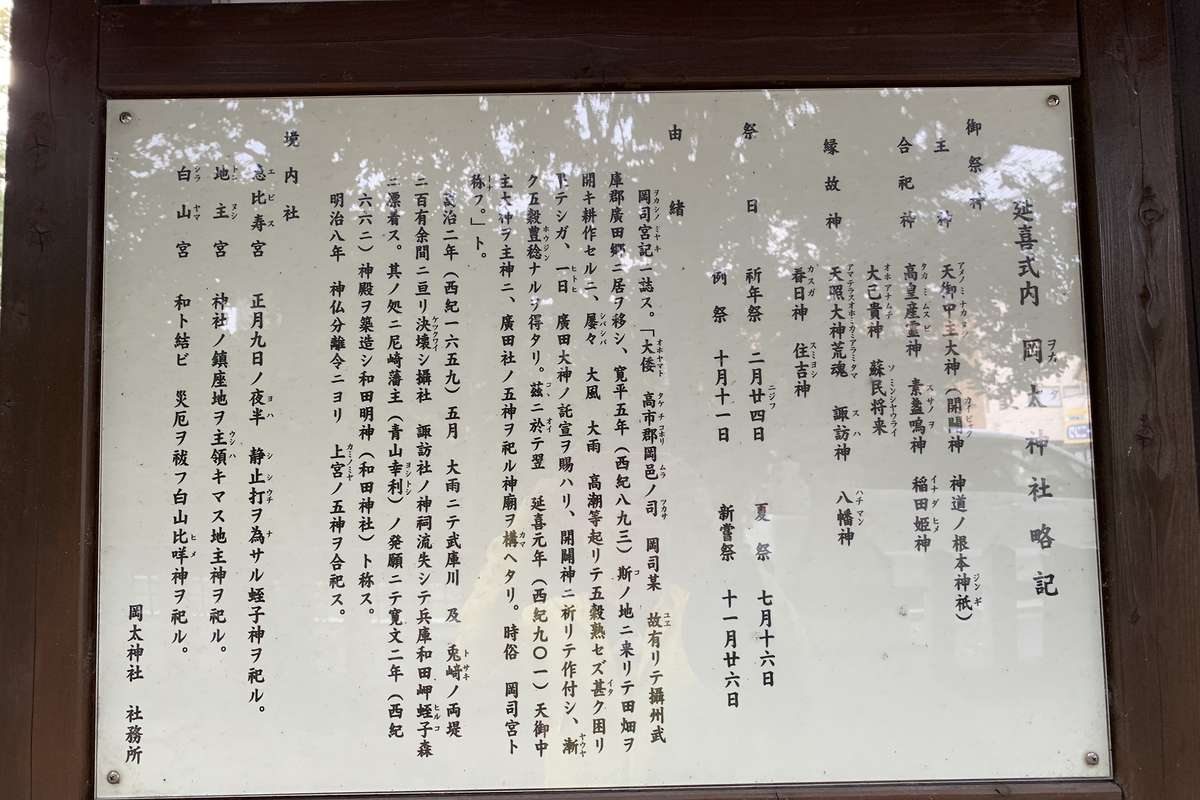 延喜式内 岡太神社略記
御祭神
主神 天御中主大神(開闢神 神道ノ根本神祇)
合祀神 高皇産霊神 素盞嗚神 稲田姫神
大己貴神 蘇民将来
縁故神 天照大神荒魂 諏訪神 八幡神
春日神 住吉神
祭日 祈年祭 二月廿四日 夏祭 七月十六日
例祭 十月十一日 新嘗祭 十一月廿六日
由緒
岡司宮記ニ誌ス。「大倭 高市郡岡邑ノ司 岡司某 故有リテ攝州武
庫郡廣田郷ニ居ヲ移シ、寛平五年(西紀八九三)斯ノ地ニ来リテ田畑ヲ
開キ耕作セルニ、屡々 大風 大雨 高潮等起リテ五穀熟セズ甚ク困リ
テシガ、一日 廣田大神ノ託宣ヲ賜ハリ、開闢神ニ祈リテ作付シ、漸
ク五穀豊稔ナルヲ得タリ。茲ニ於テ翌 延喜元年(西紀九〇一)天御中
主大神ヲ主神ニ、廣田社ノ五神ヲ祀ル神廟ヲ構ヘタリ。時俗 岡司宮ト
称フ。」ト。
治二年(西紀一六五九)五月 大雨ニテ武庫川 及 兎﨑ノ両堤
二百有余間ニ亘リ決壊シ攝社 諏訪社ノ神祠流失シテ兵庫和田岬蛭子森
ニ漂着ス。其ノ処ニ尼崎藩主(青山幸利)ノ発願ニテ寛文二年(西紀
六六二)神殿ヲ築造シ和田明神(和田神社)ト称ス。
明治八年 神仏分離令ニヨリ 上宮ノ五神ヲ合祀ス。
境内社
恵比寿宮 正月九日ノ夜半 静止打ヲ為サル蛭子神ヲ祀ル。
地主宮 神社ノ鎮座地ヲ主領キマス地主神ヲ祀ル。
白山宮 和ト結ビ 災厄ヲ祓フ白山比咩神ヲ祀ル。
岡太神社 社務所